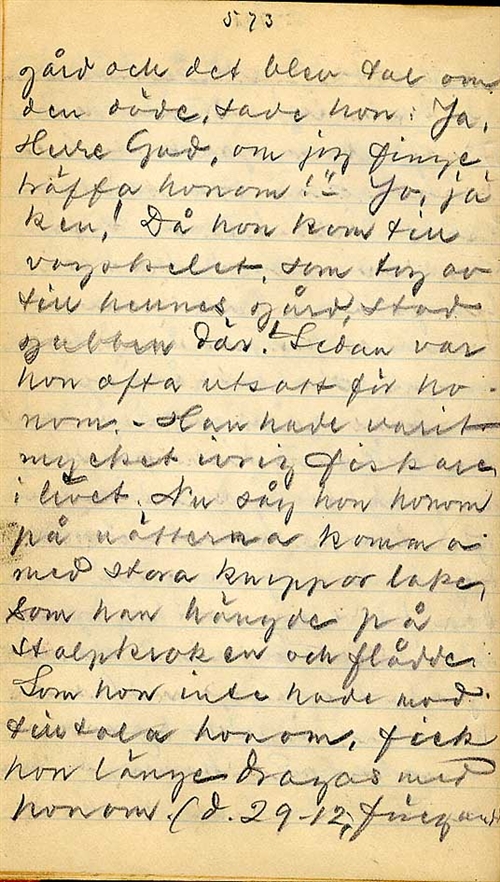 573
gård och det blev tal om
den döde, sade hon: Ja,
Herre Gud, om jag finge
träffa honom!" Jo, jä
ken! Då hon kom till
vägskelet, som tog av
till hennes gård, stod
gubben där! Sedan var
hon ofta utsatt för ho-
nom. - Han hade varit
mycket ivrig fiskare
i livet. Nu såg hon honom
på nätterna komma
med stora knippor lake,
som han hängde på
stolpkroken och flådde.
Som hon inte hade mod
tilltala honom, fick
hon länge dragas med
honom. (d. 29-12,